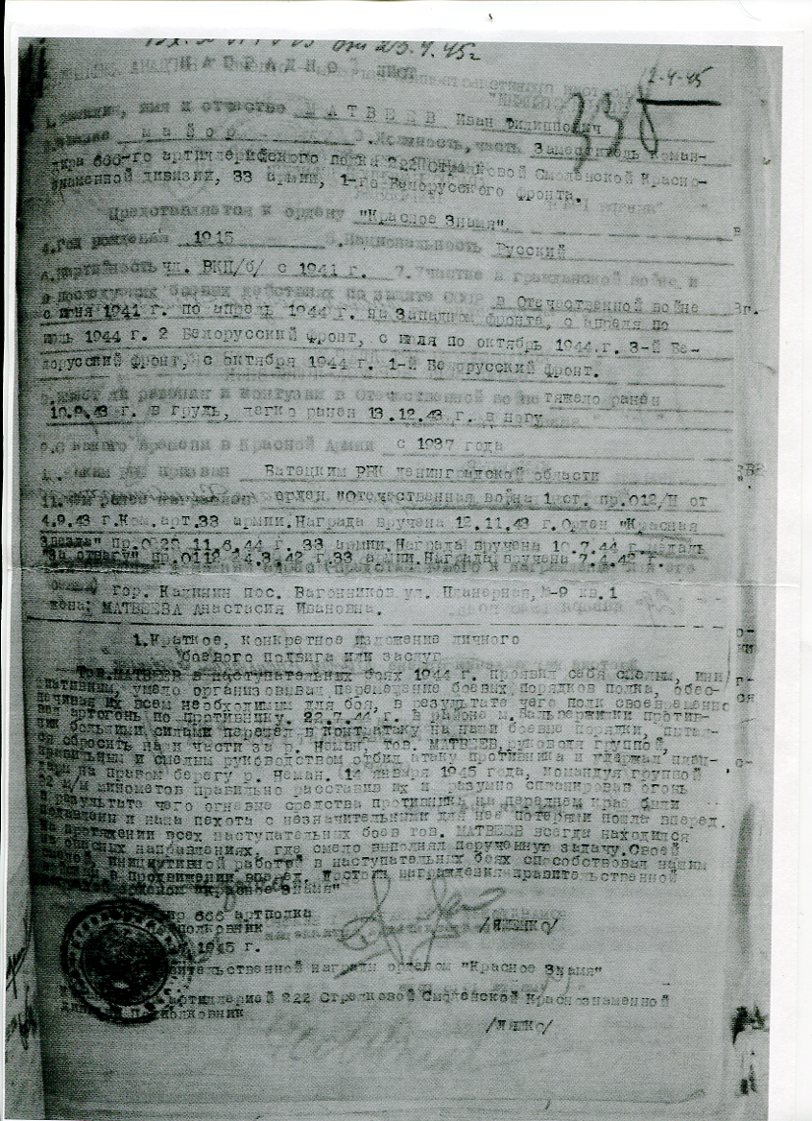 от 23.4.45г
НАГРАДНОЙ ЛИСТ
12-4-45
1. Фамилия, имя и отчество МАТВЕЕВ Иван Филиппович
майор 3. Должность, часть Заместитель коман-
дира 666-го артиллерийского полка 222 Стрелковой Смоленской Красно-
знаменной дивизии, 33 армии, 1-го Белорусского фронта.
Представляется к ордену "Красное Знамя".
4. Год рождения 1915 5. Национальность Русский
6. Партийность чл. ВКП/б/ с 1941 г. 7. Участие в гражданской войне и
в последующих боевых действиях по защите СССР в Отечественной войне
с июня 1941 г. по апрель 1944 г. на Западном фронта, с апреля по
июль 1944 г. 2 Белорусский фронт, с июля по октябрь 1944.г. 3-й Бе-
лорусский фронт, с октября 1944 г. 1-й Белорусский фронт.
8. Имеет ли ранения и контузии в Отечественной войне тяжело ранен
г. в грудь, легко ранен 13.12.43 г. в ногу
9. С какого времени в Красной Армии с 1937 года
10. Каким РВК призван Батецким РВК Ленинградской области
11. Чем ранее награжден орден "Отечественная война 1 ст. пр.012/Н от
4.9.43 г. Ком.арт.33 армии. Награда вручена 12.11.43 г. Орден "Красная
Звезда" 11.6.44 г. 33 армии. Награда вручена 10.7.44 г. медаль
"За отвагу" пр.0112 г. 33 армии. Награда
гор. Калинин пос. Вагонников ул. Планерная, №-9 кв.1
жена: МАТВЕЕВА Анастасия Ивановна.
1. Краткое, конкретное изложение личного
боевого подвига или заслуг
Тов. МАТВЕЕВ в наступательных боях 1944 г. проявил себя смелым, ини
циативным, умело организовывал перемещение боевых порядков полка, обес-
печивая их всем необходимым для боя, в результате чего полк своевременно
вел артогонь по противнику. 22.7.44 г. в районе м. против-
ник большими силами перешел в контратаку на наши боевые порядки, пытал-
ся сбросить наши части за р. Неман, тов. МАТВЕЕВ, руководя группой,
правильным и смелым руководством отбил атаку противника и удержал плац-
дарм на правом берегу р. Неман. (14 января 1945 года, командуя группой
82 м/м минометов правильно расставив их и разумно спланировав огонь
в результате чего огневые средства противника на переднем крае были
подавлены и наша пехота с незначительными для нее потерями пошла вперед.
На протяжении всех наступательных боев тов. МАТВЕЕВ всегда находился
на опасных направлениях, где смело выполнял порученную задачу. Своей
смелой, инициативной работой в наступательных боях способствовал нашим
в продвижении вперед. Достоин награждения правительственной
наградой орденом "Красное Знамя"
666 артполка
подполковник /ЯЩЕНКО/
1945 г.
правительственной награды орденом "Красное Знамя"
артиллерией 222 Стрелковой Смоленской Краснознаменной
дивизии подполковник
/ЛЯШКО/